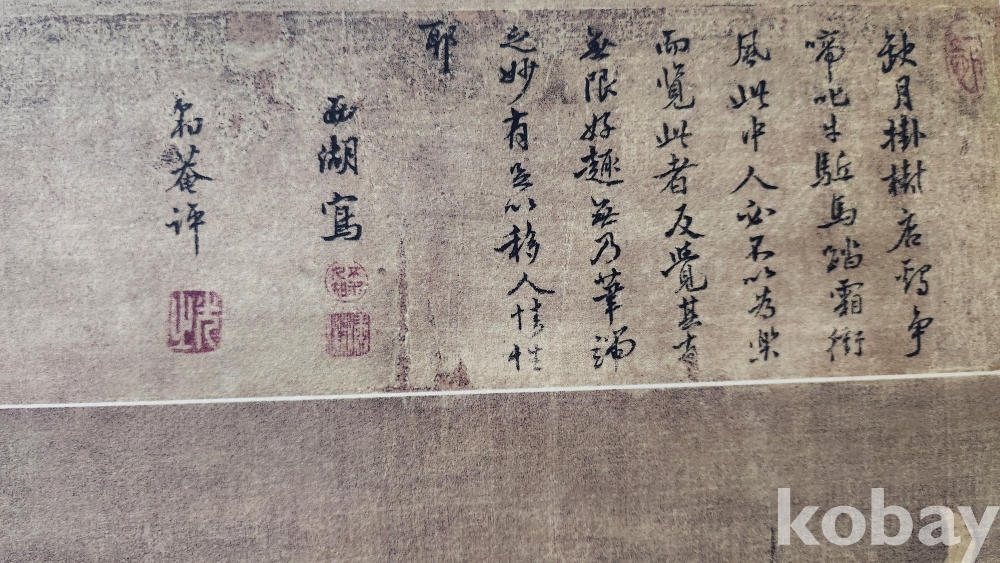 缺月掛樹店鷄争
啼叱牛駈馬踏霜衝
風此中人必不以為樂
而覽此者反覺其有
無限好趣無乃筆端
之妙有足以移人情性
耶
西湖寫
菴評
kobay